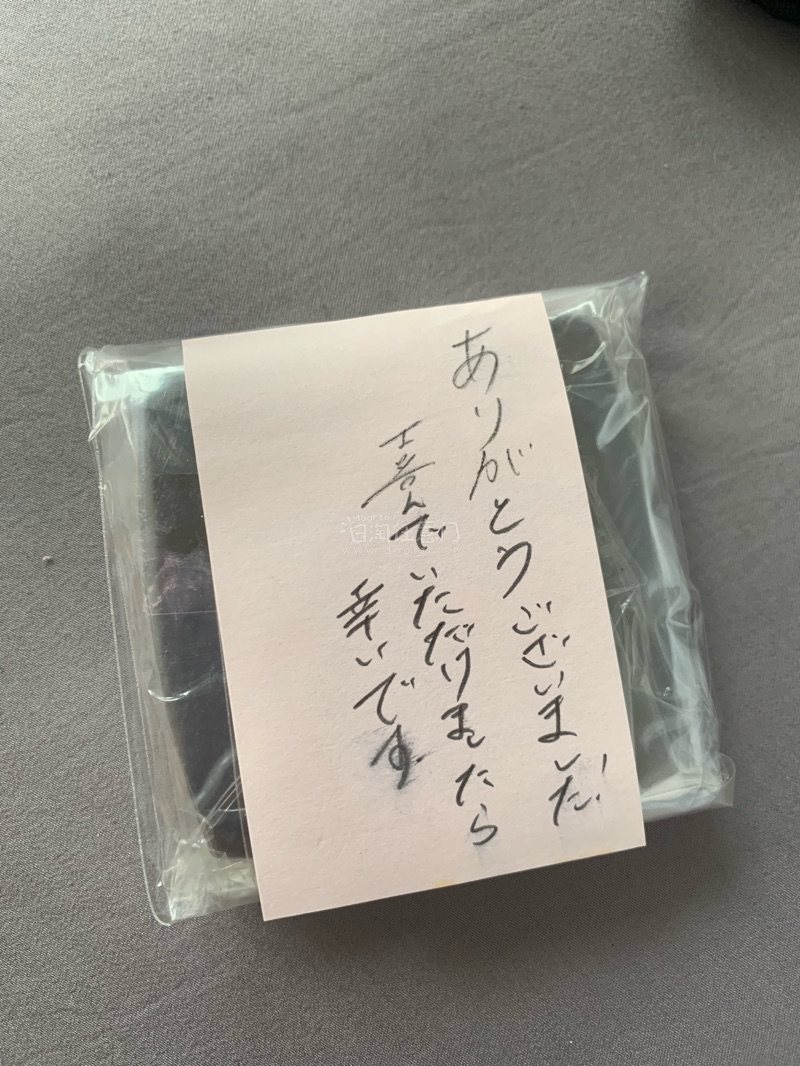 ありがとうございました！
喜んでいただけましたら
幸いです